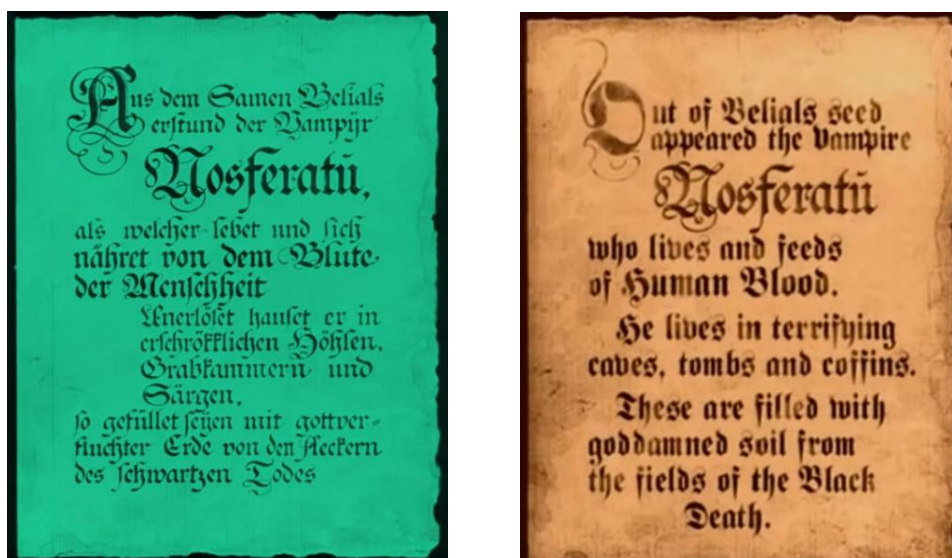 Aus dem Samen Belials
erstund der Vampÿr
Nosferatū,
als welcher lebet und sich
nähret von dem Blute
der Menschheit
Unerlöset hauset er in
erschrökklichen Höhlen,
Grabkammern und
Särgen,
so gefüllet seyen mit gottver-
fluchter Erde von den Aeckern
des schwartzen Todes
Out of Belials seed
appeared the Vampire
Nosferatū
who lives and feeds
of Human Blood.
He lives in terrifying
caves, tombs and coffins.
These are filled with
goddamned soil from
the fields of the Black
Death.